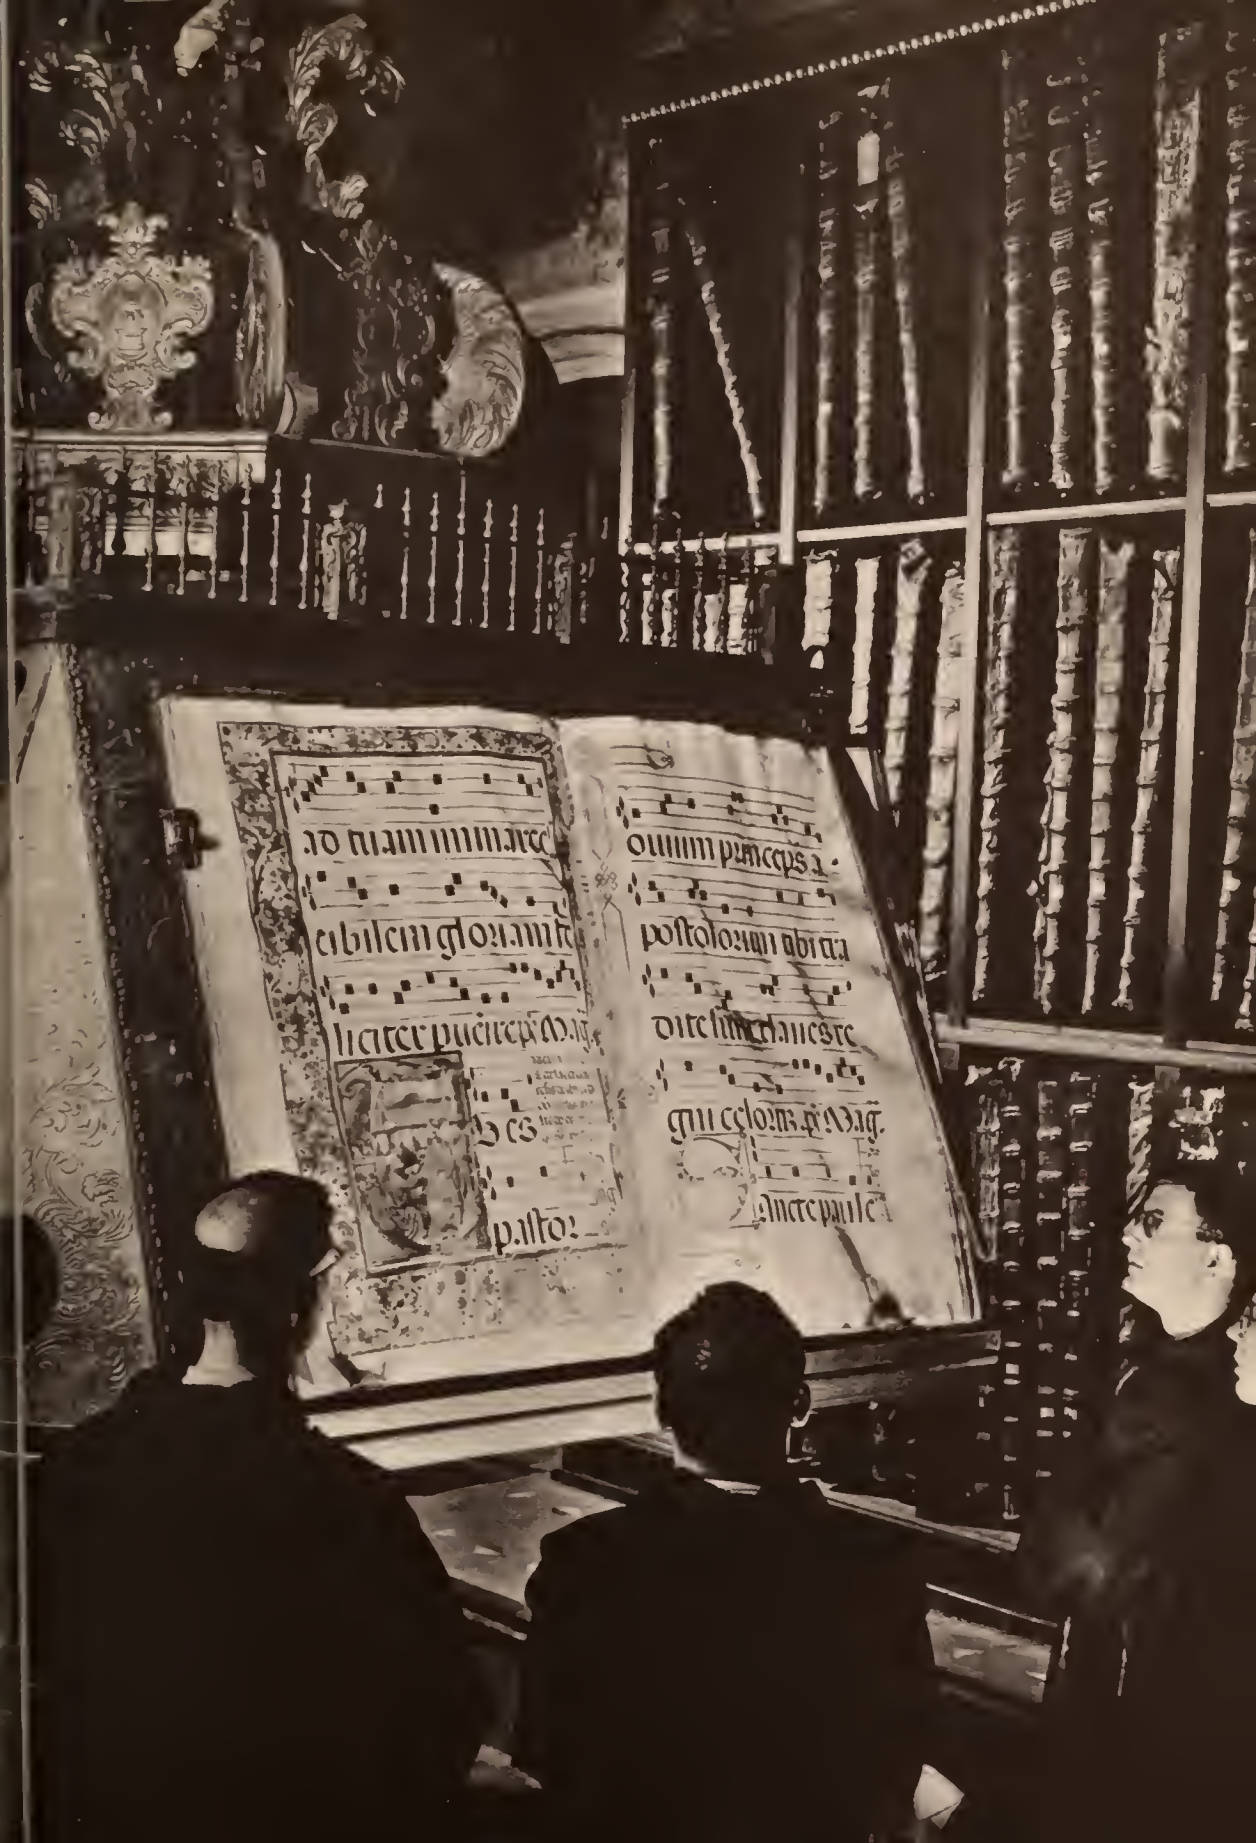 ad tuam immarce
cibilem gloriam fe
liciter puenire p̄ Mag.
TV es
pastor
ouium princeps a-
postolorum tibi tra
dite sunt claues re
gni celorꝝ. p̄ Mag.
Sancte paule